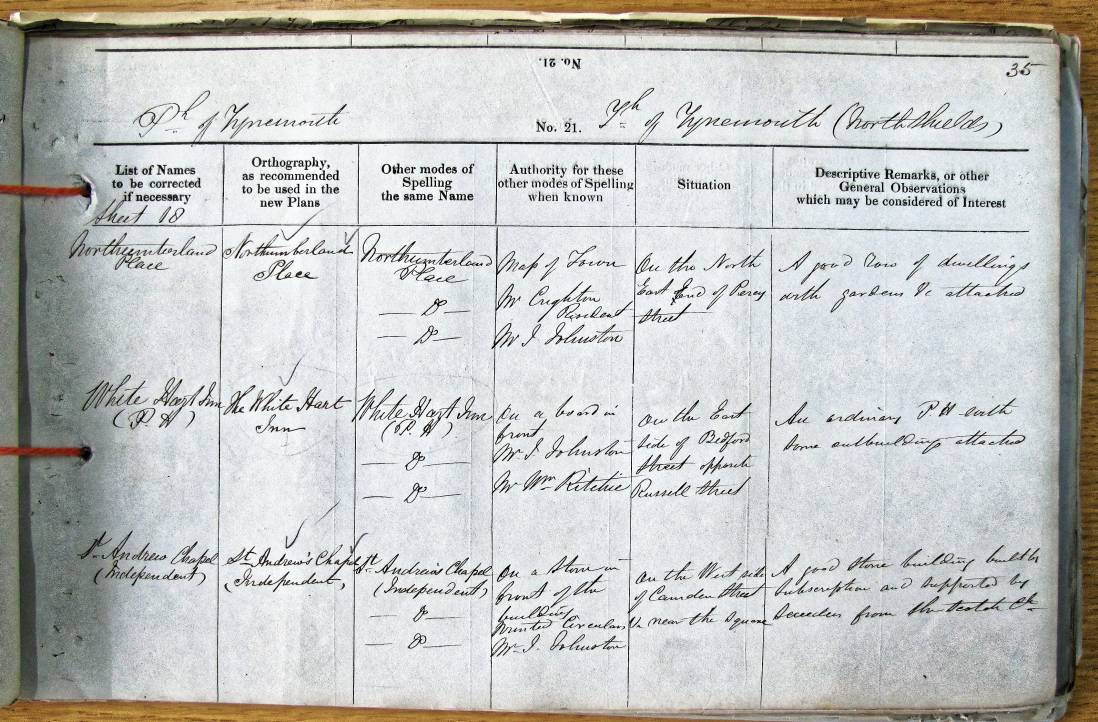 No. 21.
35
Ph of Tynemouth
No. 21.
Th of Tynemouth (North Shields)
List of Names
to be corrected
if necessary
Orthography,
as recommended
to be used in the
new Plans
Other modes of
Spelling
the same Name
Authority for these
other modes of Spelling
when known
Situation
Descriptive Remarks, or other
General Observations
which may be considered of Interest
Sheet 18
Northumberland
Place
Northumberland
Place
Northumberland
Place
Do
Do
Map of Town
Mr Crighton
Resident
Mr J. Johnston
On the North
East End of Percy
Street
A good row of dwellings
with gardens &c attached
White Hart Inn
(P. H)
The White Hart
Inn
White Hart Inn
(P. H)
Do
Do
On a board in
front
Mr J. Johnston
Mr Wm Ritchie
On the East
side of Bedford
Street opposite
Russell Street
An ordinary P H with
some outbuildings attached
St Andrew Chapel
(Independent)
St Andrew's Chapel
(Independent)
St Andrew's Chapel
(Independent)
Do
Do
On a Stone in
front of the
building
Printed Circulars
Mr J. Johnston
On the West side
of Camden Street
& near the Square
A good Stone building built by
Subscription and supported by
Seceders from the Scotch Ch